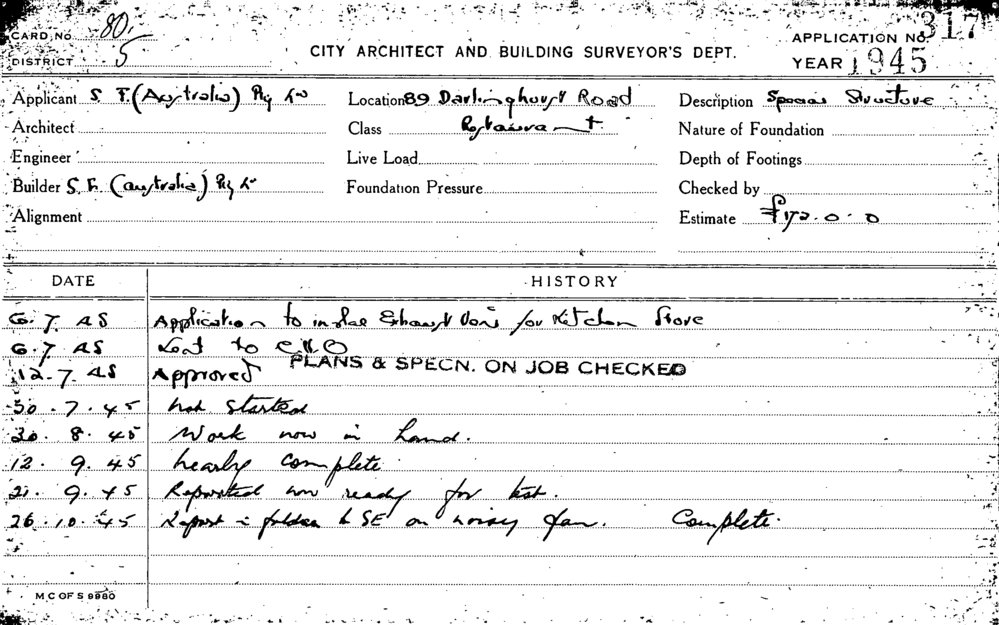 CARD No. 80.
DISTRICT 5
CITY ARCHITECT AND BUILDING SURVEYOR'S DEPT.
APPLICATION No. 317
YEAR 1945
Applicant S. F. (Australia) Pty Ld Location 89 Darlinghurst Road Description Special Structure
Architect Class Restaurant Nature of Foundation
Engineer Live Load Depth of Footings
Builder S. F. (Australia) Pty Ld Foundation Pressure Checked by
Alignment Estimate £172.0.0
DATE HISTORY
6.7.45 Application to install Exhaust for Kitchen Stove
6.7.45 Sent to
12.7.45 Approved PLANS & SPECN. ON JOB CHECKED
30.7.45 Not started
20.8.45 Work now in hand.
12.9.45 Nearly complete
21.9.45 Reported now ready for test.
26.10.45 Report in folder to SE on noisy fan. Complete.
M C OF S 9980